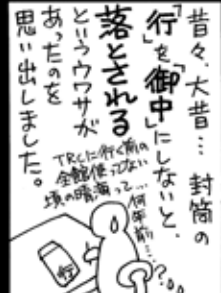 昔々、大昔…封筒の
「行」を「御中」にしないと、
落とされる
というウワサが
あったのを
思い出しました。
TRCに行く前の
全館使ってない
頃の晴海って…
何年前…
!?
行